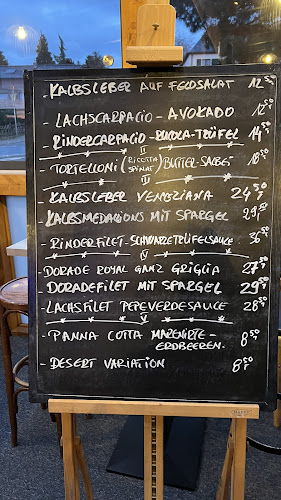 - KALBSLEBER AUF FELDSALAT 12,50
- LACHSCARPACIO - AVOKADO 12,50
- RINDERCARPACIO - RUKOLA - TRÜFEL 14,50
II
- TORTELLONI (RICOTTA SPINAT) BUTTER - SALBEI 18,50
III
- KALBSLEBER VENEZIANA 24,50
- KALBSMEDAGIONS MIT SPARGEL 29,50
- RINDERFILET - SCHWARZETRÜFELSAUCE 36,50
IV
- DORADE ROYAL GANZ GRIGLIA 27,50
- DORADEFILET MIT SPARGEL 29,50
- LACHSFILET PEPEVERDESAUCE 28,50
V
- PANNA COTTA MARENIRTE -
ERDBEEREN. 8,50
- DESERT VARIATION 8,50